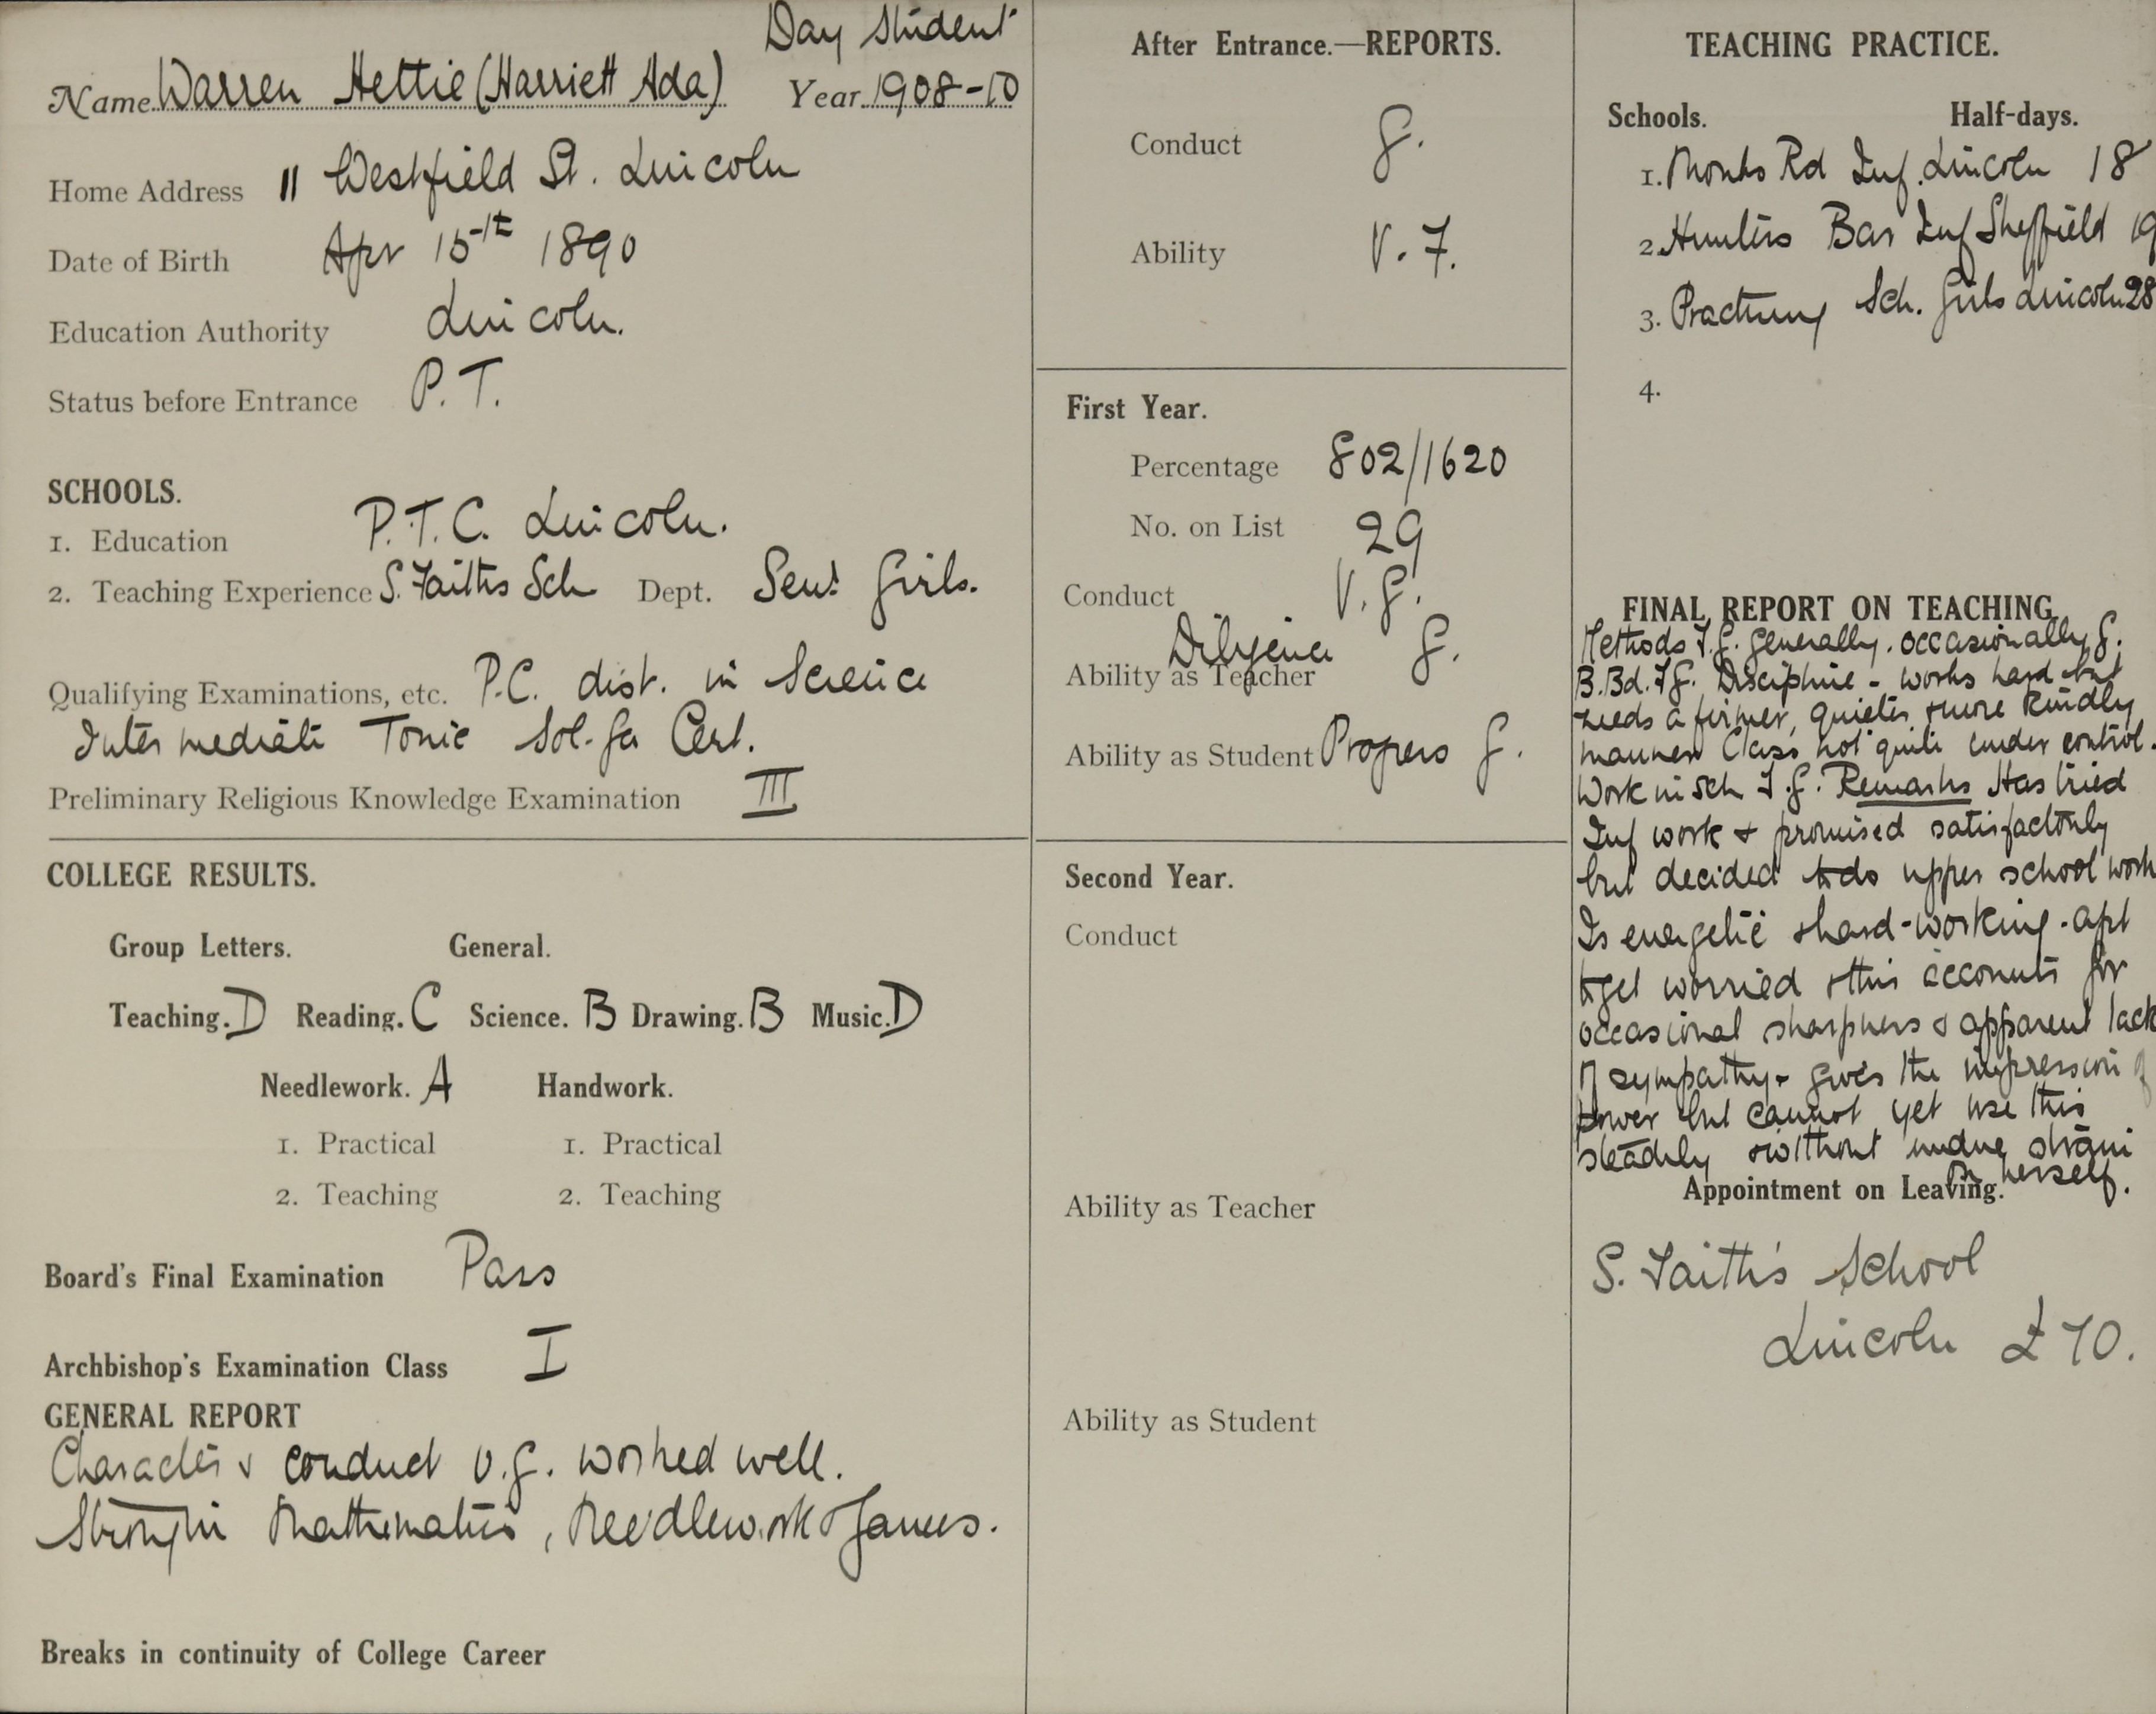 Day Student
Name Warren Hettie (Harriett Ada) Year 1908-10
Home Address 11 Westfield St. Lincoln
Date of Birth Apr 15th 1890
Education Authority Lincoln.
Status before Entrance P.T.
SCHOOLS.
1. Education P.T.C. Lincoln.
2. Teaching Experience S. Faiths Sch Dept. Senr Girls.
Qualifying Examinations, etc. P.C. dist. in Science
Intermediate Tonic Sol-fa Cert.
Preliminary Religious Knowledge Examination III
COLLEGE RESULTS.
Group Letters. General.
Teaching. D Reading. C Science. B Drawing. B Music. D
Needlework. A Handwork.
1. Practical 1. Practical
2. Teaching 2. Teaching
Board's Final Examination Pass
Archbishop's Examination Class I
GENERAL REPORT
Character & conduct v.g. worked well.
Strong in Mathematics, Needlework & Games.
Breaks in continuity of College Career
After Entrance.—REPORTS.
Conduct g.
Ability V. F.
First Year.
Percentage 802/1620
No. on List 29
Conduct V.g.
Diligence g.
Ability as Teacher
Ability as Student Progress g.
Second Year.
Conduct
Ability as Teacher
Ability as Student
TEACHING PRACTICE.
Schools. Half-days.
1. Monks Rd Inf. Lincoln 18
2. Hunters Bar Inf Sheffield 19
3. Practising Sch. Girls Lincoln 28
4.
FINAL REPORT ON TEACHING
Methods F.g. generally. occasionally g.
B.Bd. Fg. Discipline - works hard but
needs a firmer, quieter & more kindly
manner Class not quite under control.
Work in Sch F.g. Remarks Has tried
Inf work & promised satisfactorily
but decided to do upper school work
Is energetic & hard-working - apt
to get worried & this accounts for
occasional sharpness & apparent lack
of sympathy - gives the impression of
power but cannot yet use this
steadily & without undue strain
on herself.
Appointment on Leaving.
S. Faith's School
Lincoln £70.